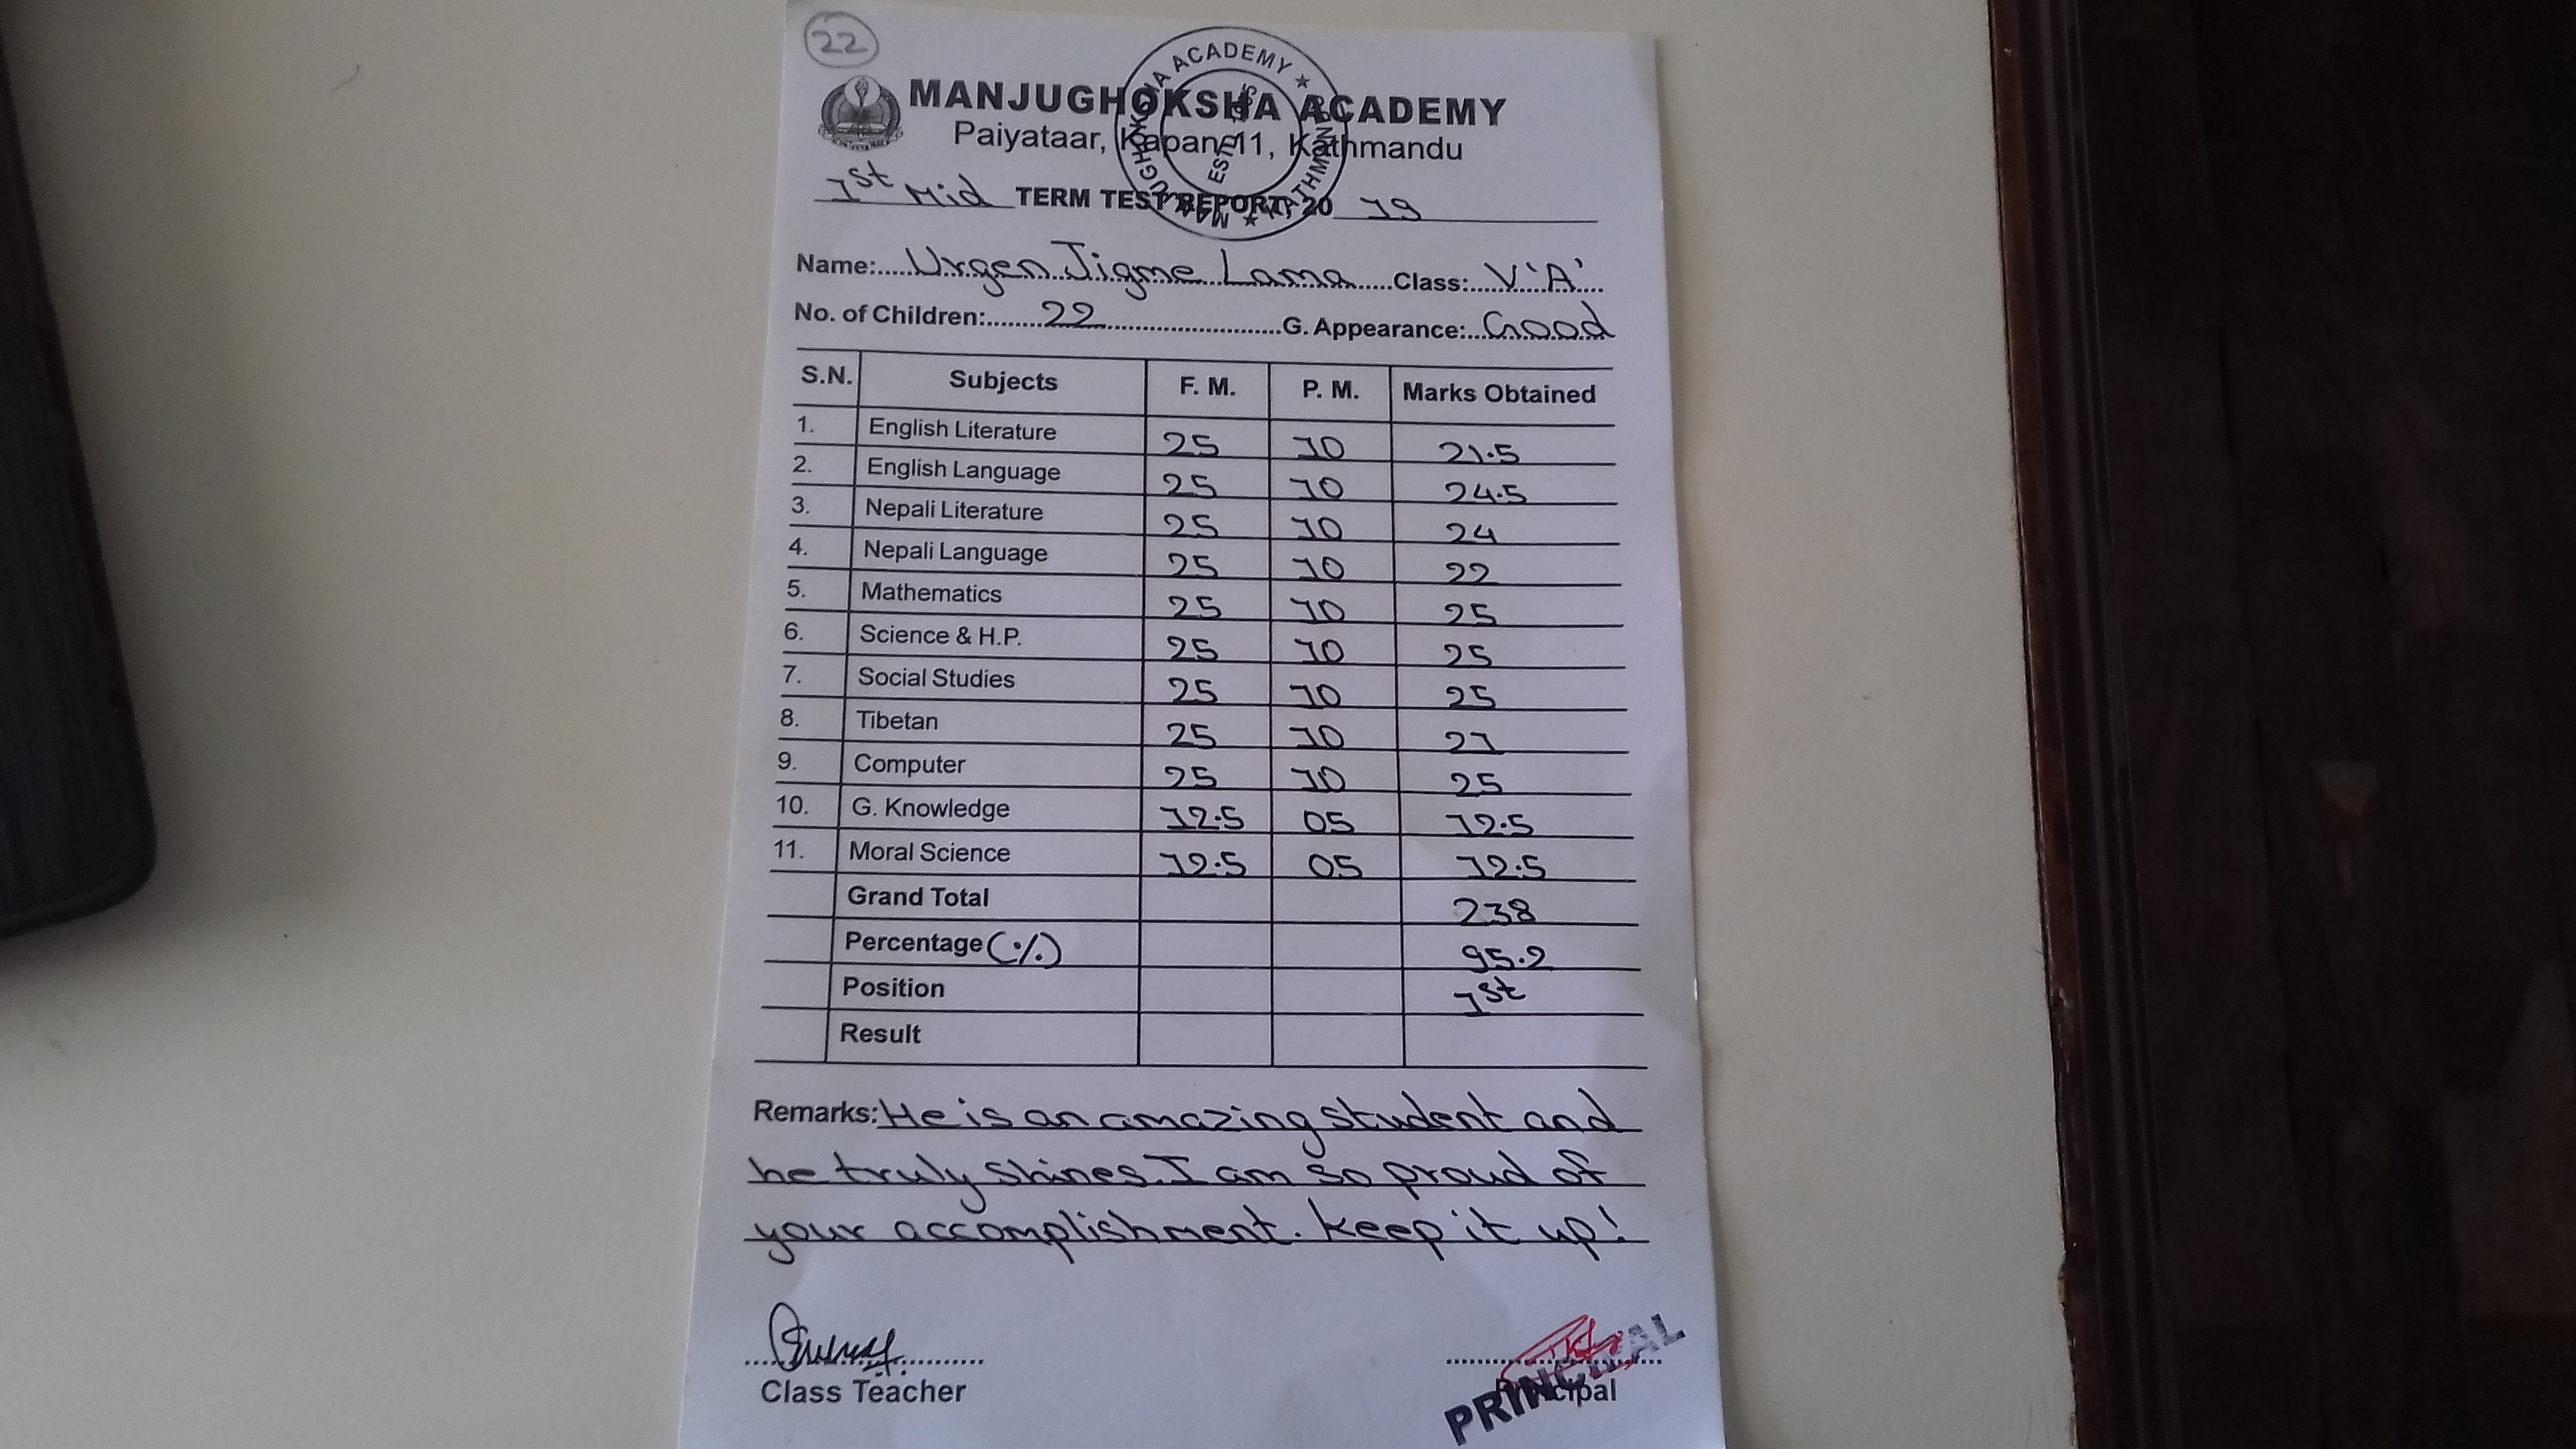 22
MANJUGHOKSHA ACADEMY
Paiyataar, Kapan-11, Kathmandu
1st Mid TERM TEST REPORT, 20 19
Name: Urgen Jigme Lama Class: V 'A'
No. of Children: 22 G. Appearance: Good
S.N. Subjects F. M. P. M. Marks Obtained
1. English Literature 25 10 21.5
2. English Language 25 10 24.5
3. Nepali Literature 25 10 24
4. Nepali Language 25 10 22
5. Mathematics 25 10 25
6. Science & H.P. 25 10 25
7. Social Studies 25 10 25
8. Tibetan 25 10 21
9. Computer 25 10 25
10. G. Knowledge 12.5 05 12.5
11. Moral Science 12.5 05 12.5
Grand Total 238
Percentage (%) 95.2
Position 1st
Result
Remarks: He is an amazing student and
he truly shines. I am so proud of
your accomplishment. Keep it up!
Class Teacher Principal
PRINCIPAL